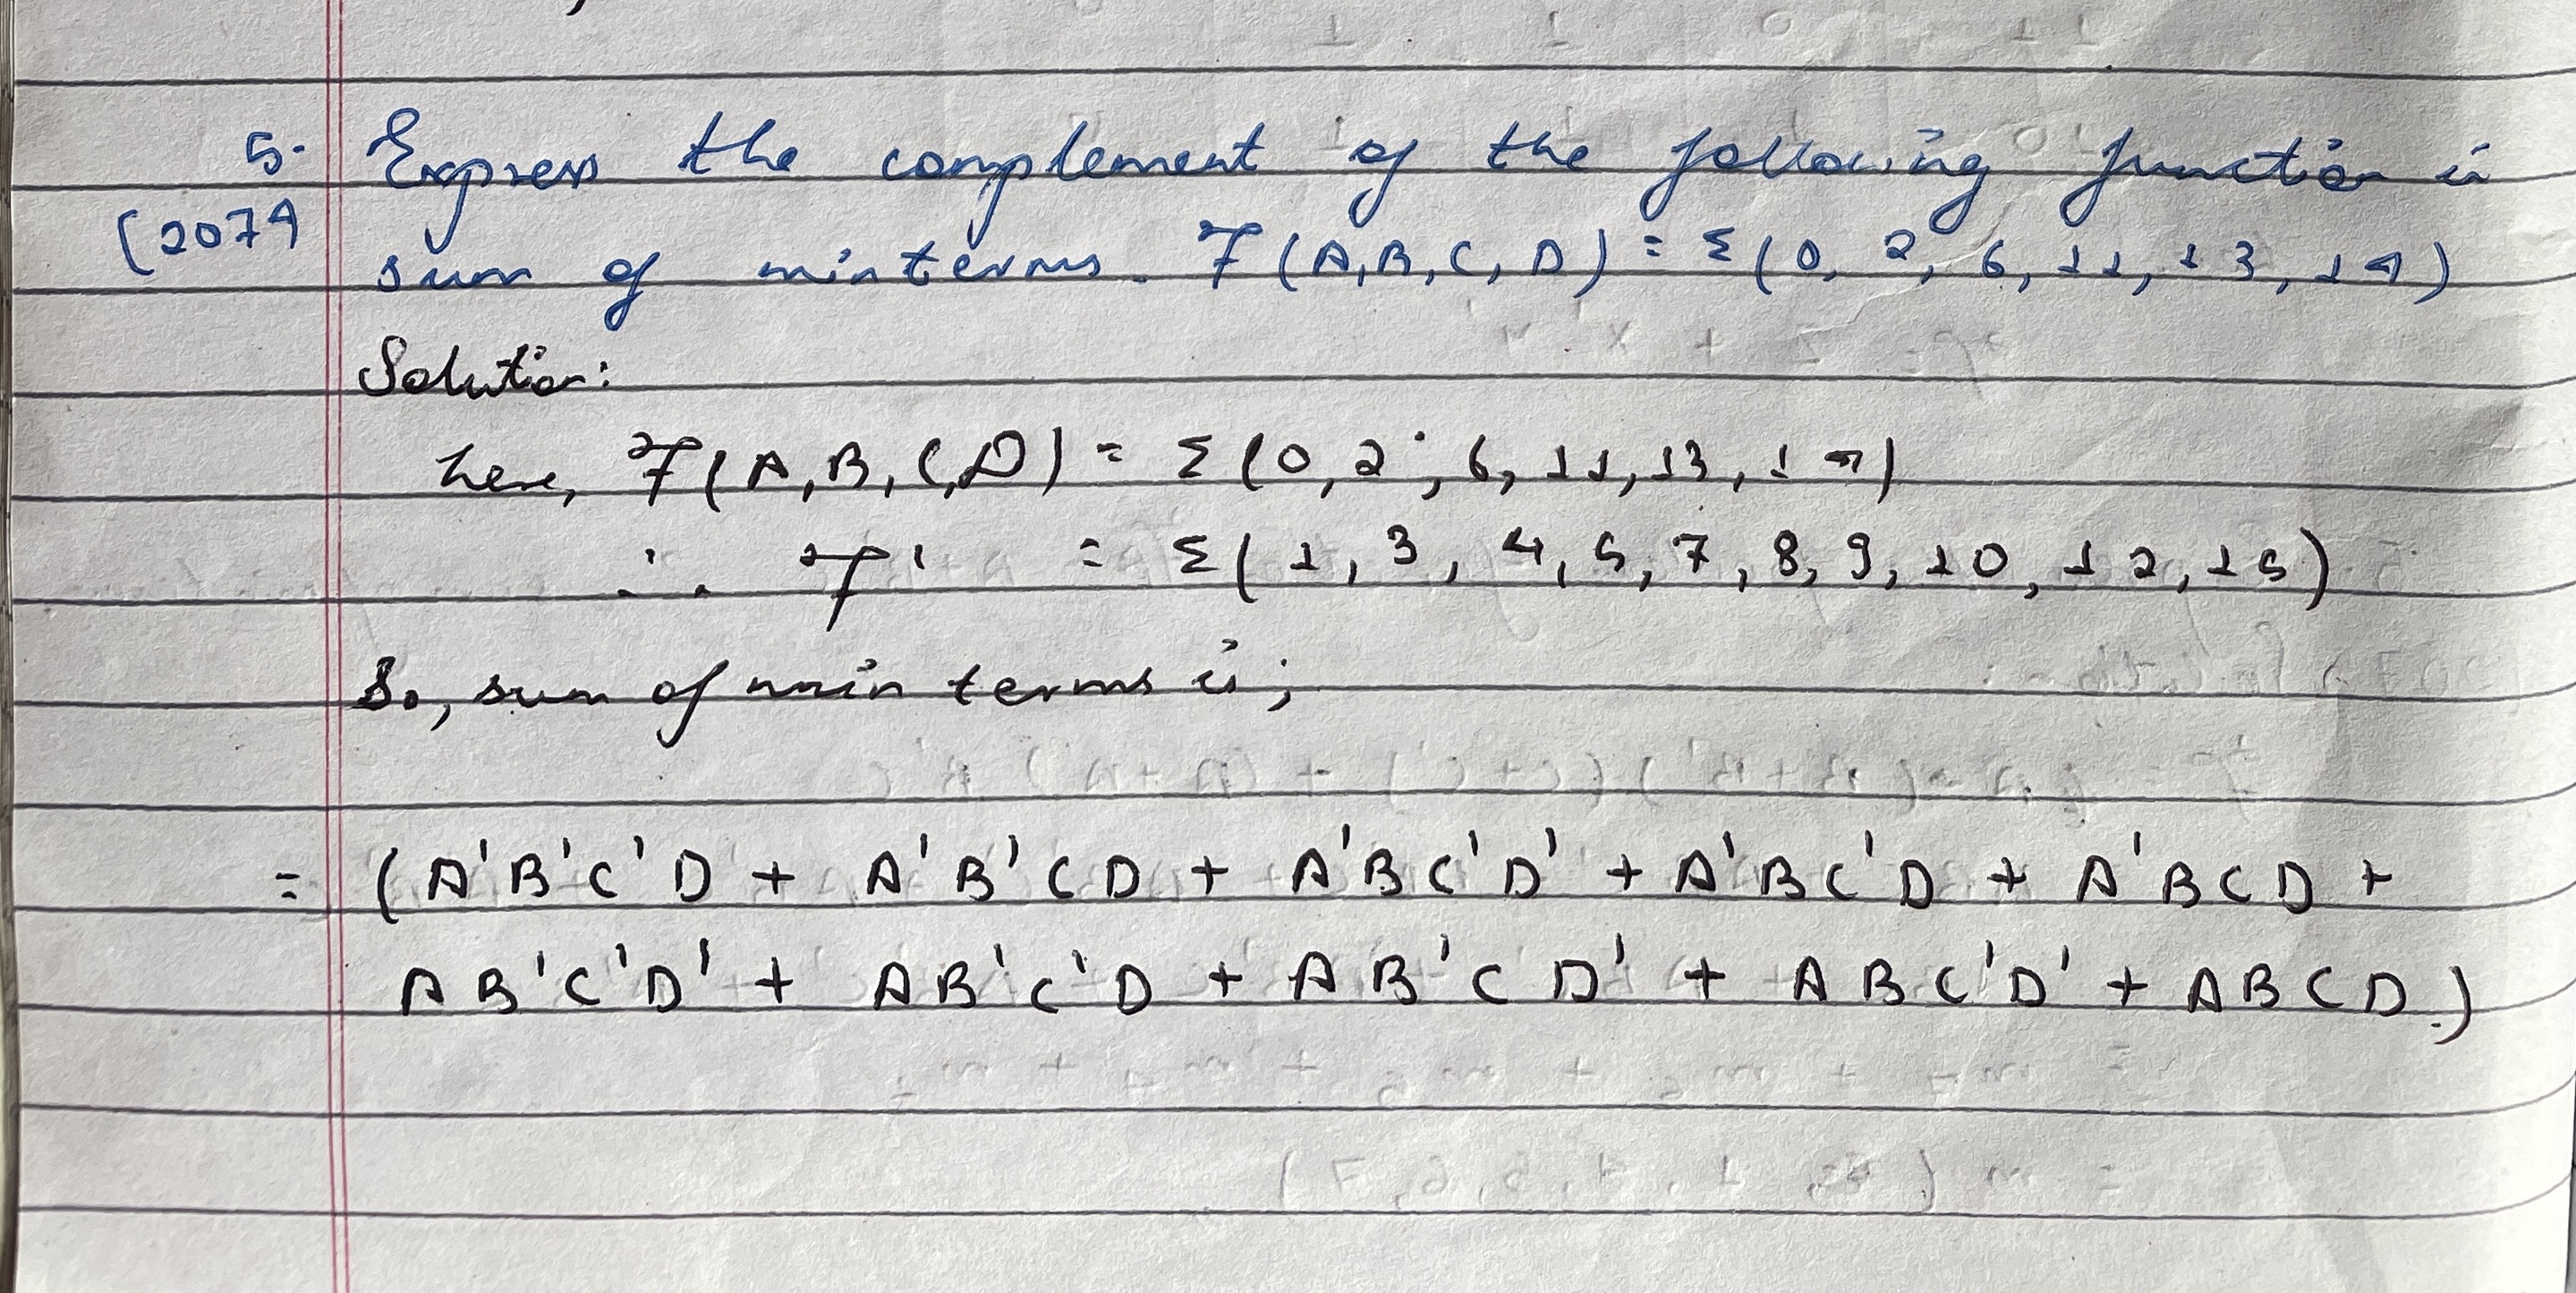 5. Express the complement of the following function in
(2074 sum of minterms. F(A,B,C,D) = Σ(0, 2, 6, 11, 13, 14)
Solution:
here, F(A,B,C,D) = Σ(0,2,6,11,13,14)
∴ F' = Σ(1,3,4,5,7,8,9,10,12,15)
So, sum of min terms is;
= (A'B'C'D + A'B'CD + A'BC'D' + A'BC'D + A'BCD +
AB'C'D' + AB'C'D + AB'CD' + ABC'D' + ABCD.)